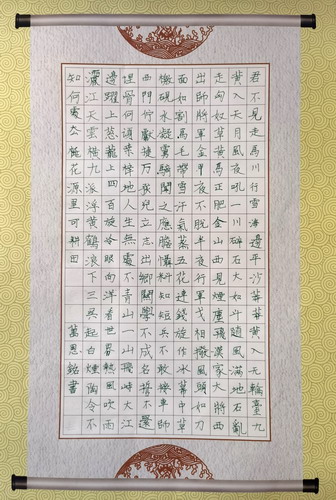 君不見走馬川行雪海邊平沙莽莽黃入天輪臺九
黃入天月風夜吼一川碎石大如斗隨風滿地石亂
走匈奴草黃馬正肥金山西見煙塵飛漢家大將西
出師將軍金甲夜不脫半夜行軍戈相撥風頭如刀
面如割馬毛帶雪汗氣蒸五花連錢旋作冰幕中草
檄硯水凝虜騎聞之應膽懾料知短兵不敢接車師
西門佇獻捷兒立志出鄉關學不成名誓不還
埋骨何須桑梓地人生無處不青山一山飛峙大江
邊躍上蔥蘢上四百旋冷眼向洋看世界熱風吹雨
灑江天雲橫九派浮黃鶴浪下三吳起白煙陶令不
知何處去桃花源里可耕田 萬恩銘書